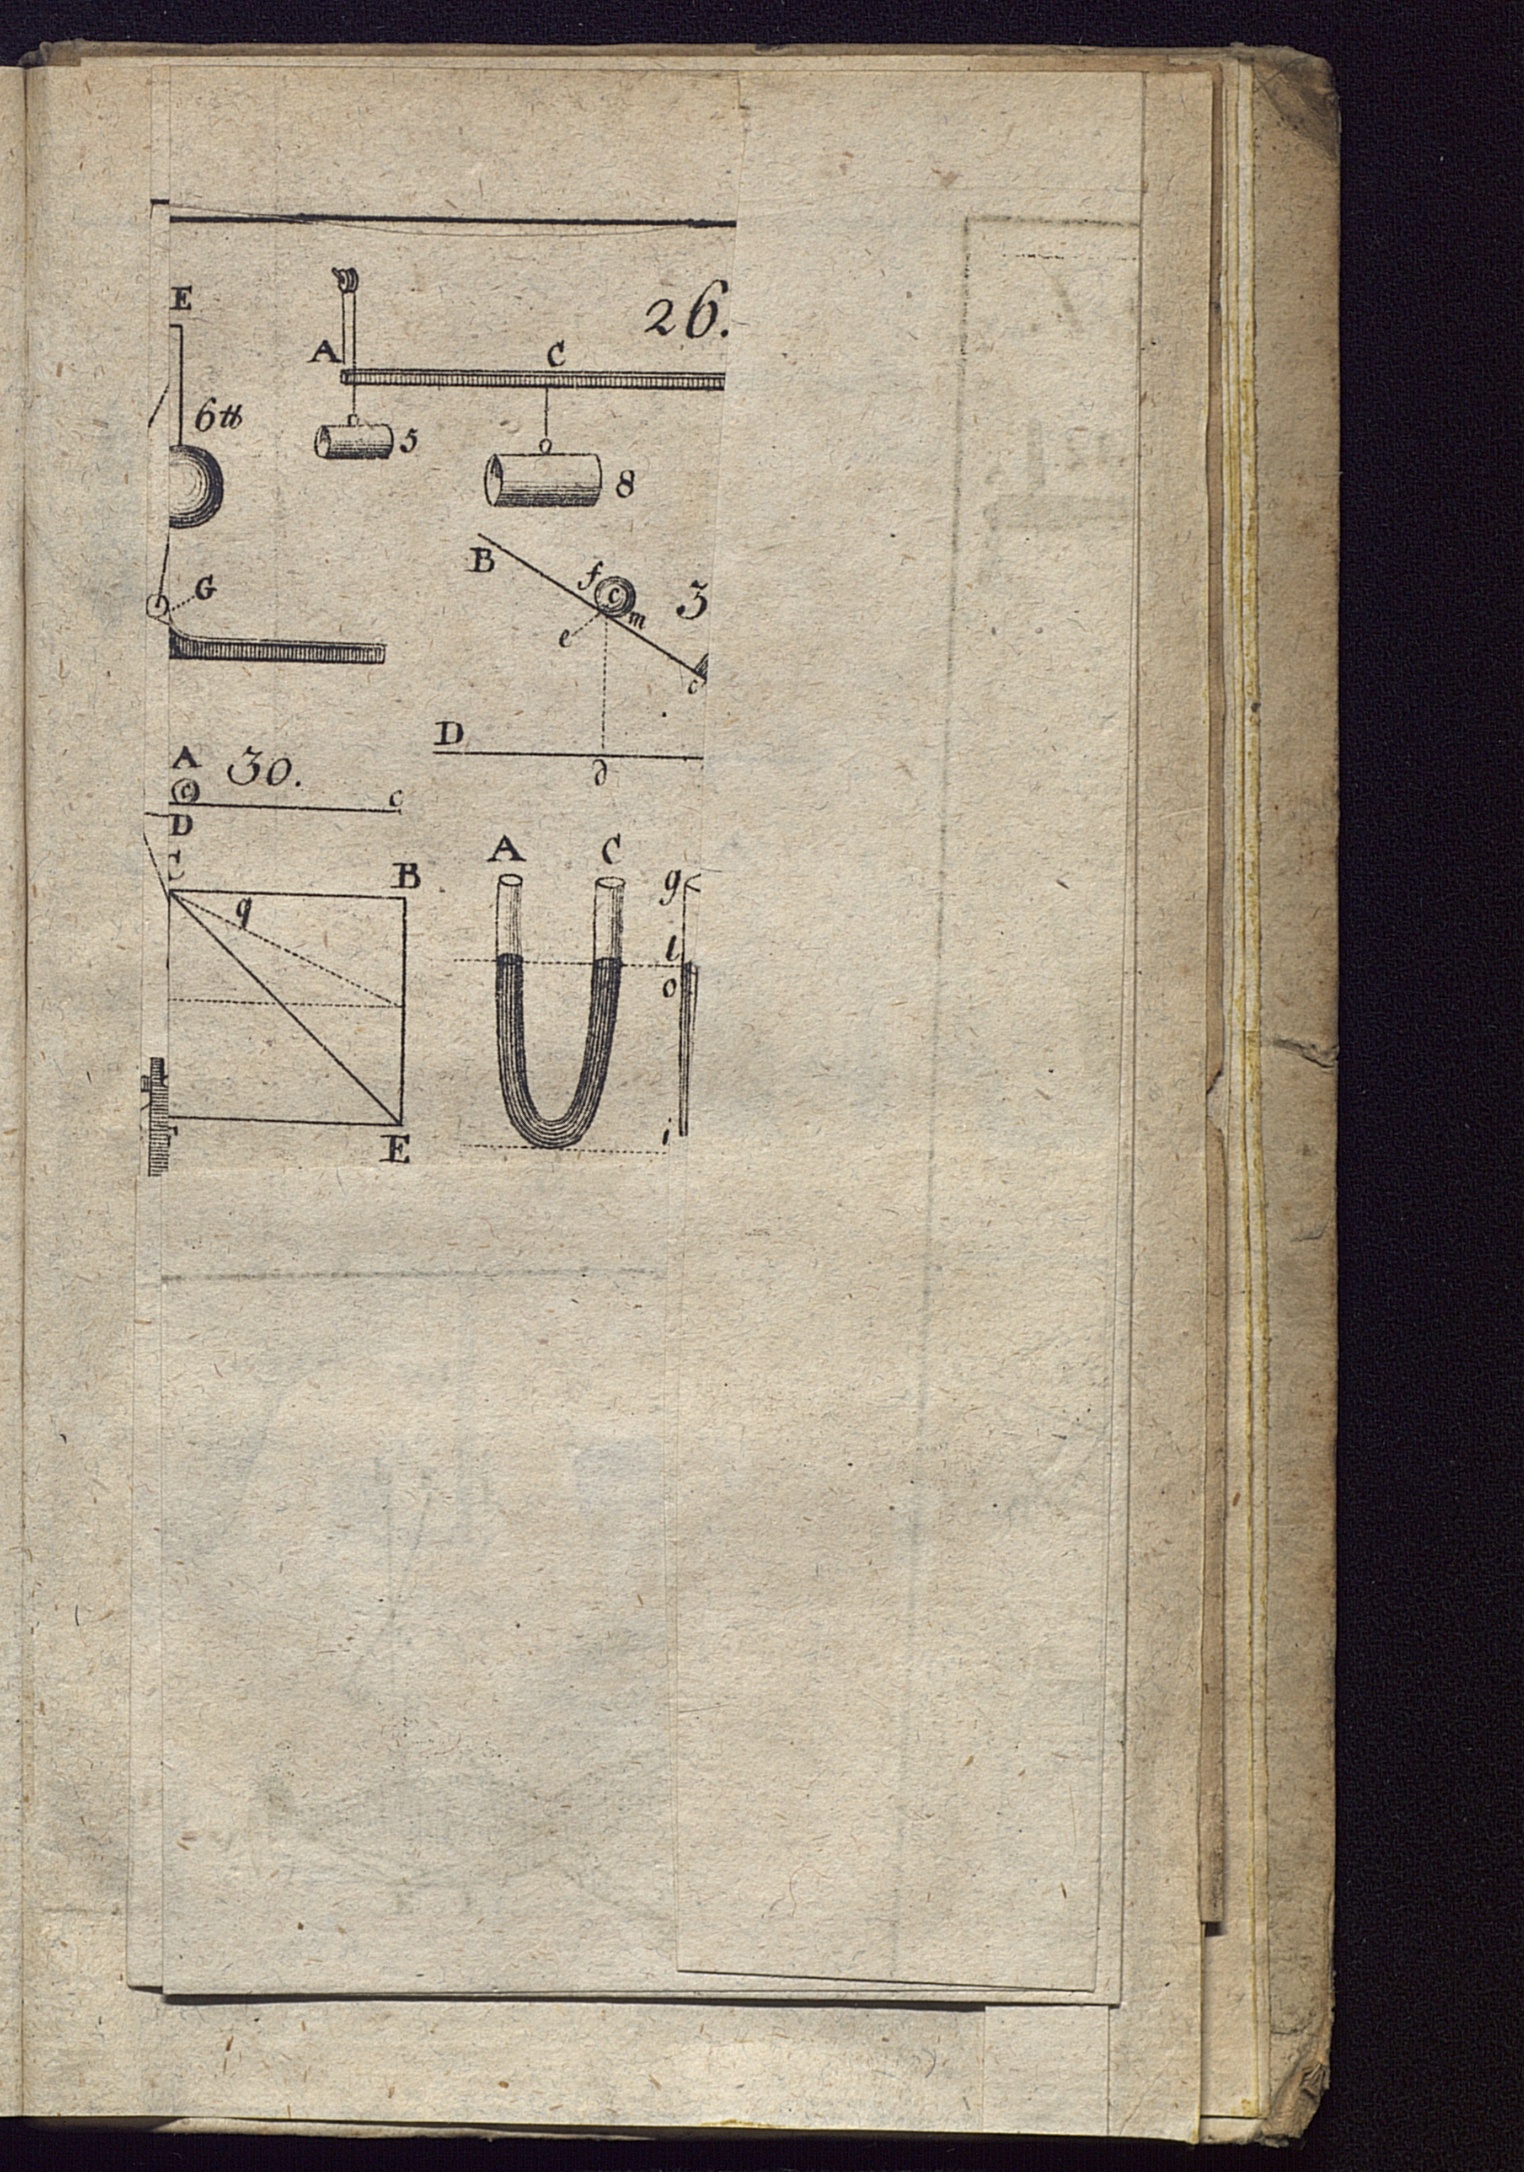 E
26.
A C
6 ℔
5
8
B f c m 3
G
e
c
D
A 30.
d
c c
D
A C
C B g
q
l
o
i
E